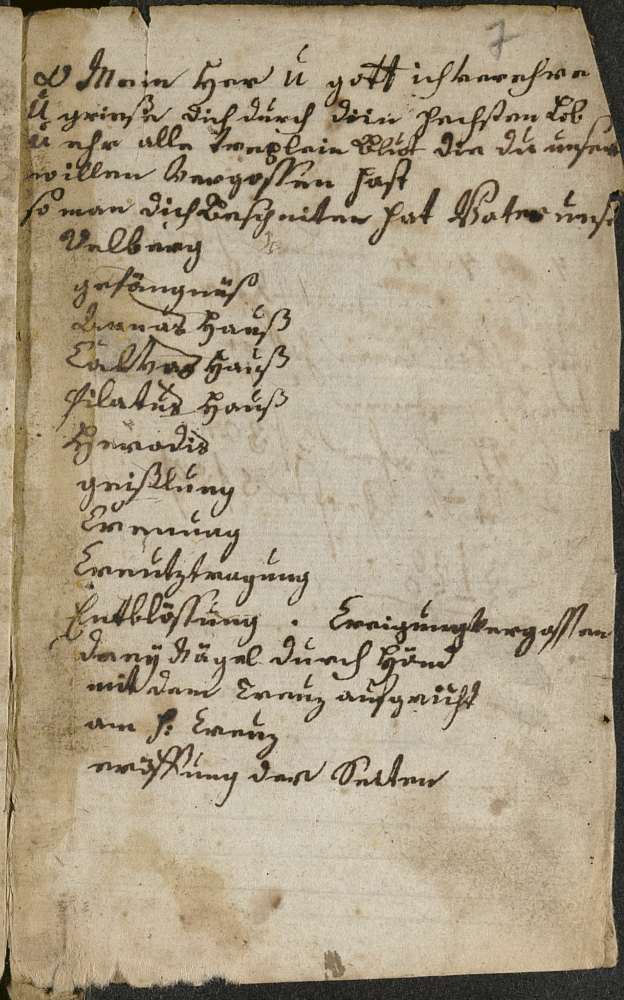 7
O Mein Her u gott ich verehre
u griesse dich durch dein hechsten Lob
u ehr alle treplein Blut die du unser
willen Vergossen hast
so man dich Beschniten hat Vater unser
Oelberg
gefängnüs
Annas Hauß
CaiVas Hauß
Pilatus Hauß
Herodis
geißlung
Crenung
Creutztragung
Entblössung . Creigung Vergossen
dreÿ Nägel durch Händ
mit dem Creuz aufgricht
am h: Creuz
eröffnung der Seiten